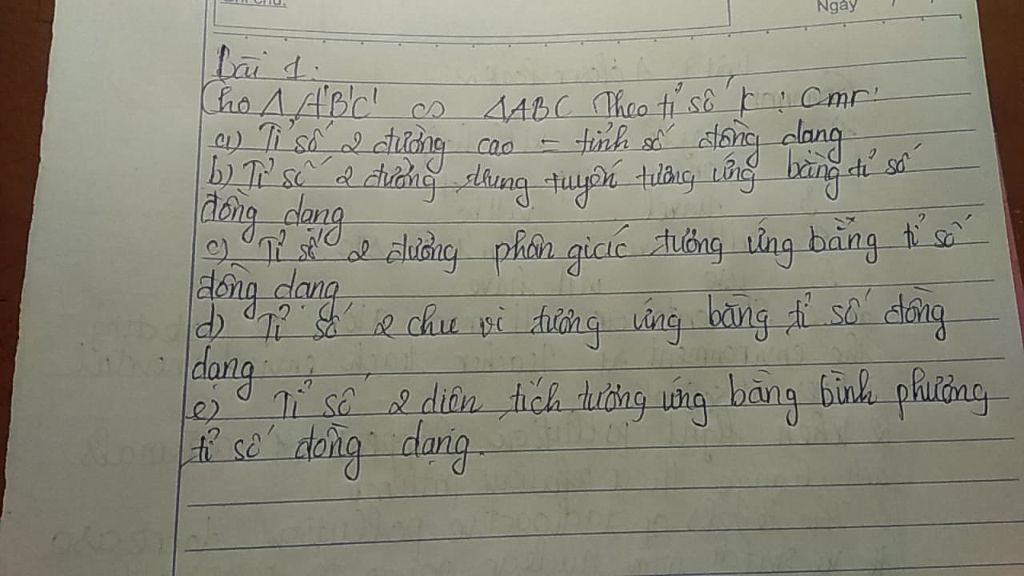 Ghi chú:
Ngày / /
Bài 1:
Cho Δ A'B'C' ∽ ΔABC Theo tỉ số k : Cmr:
a) Tỉ số 2 đường cao = tỉnh số đồng dạng
b) Tỉ số 2 đường trung tuyến tương ứng bằng tỉ số
đồng dạng
c) Tỉ số 2 đường phân giác tương ứng bằng tỉ số
đồng dạng
d) Tỉ số 2 chu vi tương ứng bằng tỉ số đồng
dạng
e) Tỉ số 2 diện tích tương ứng bằng bình phương
tỉ số đồng dạng.